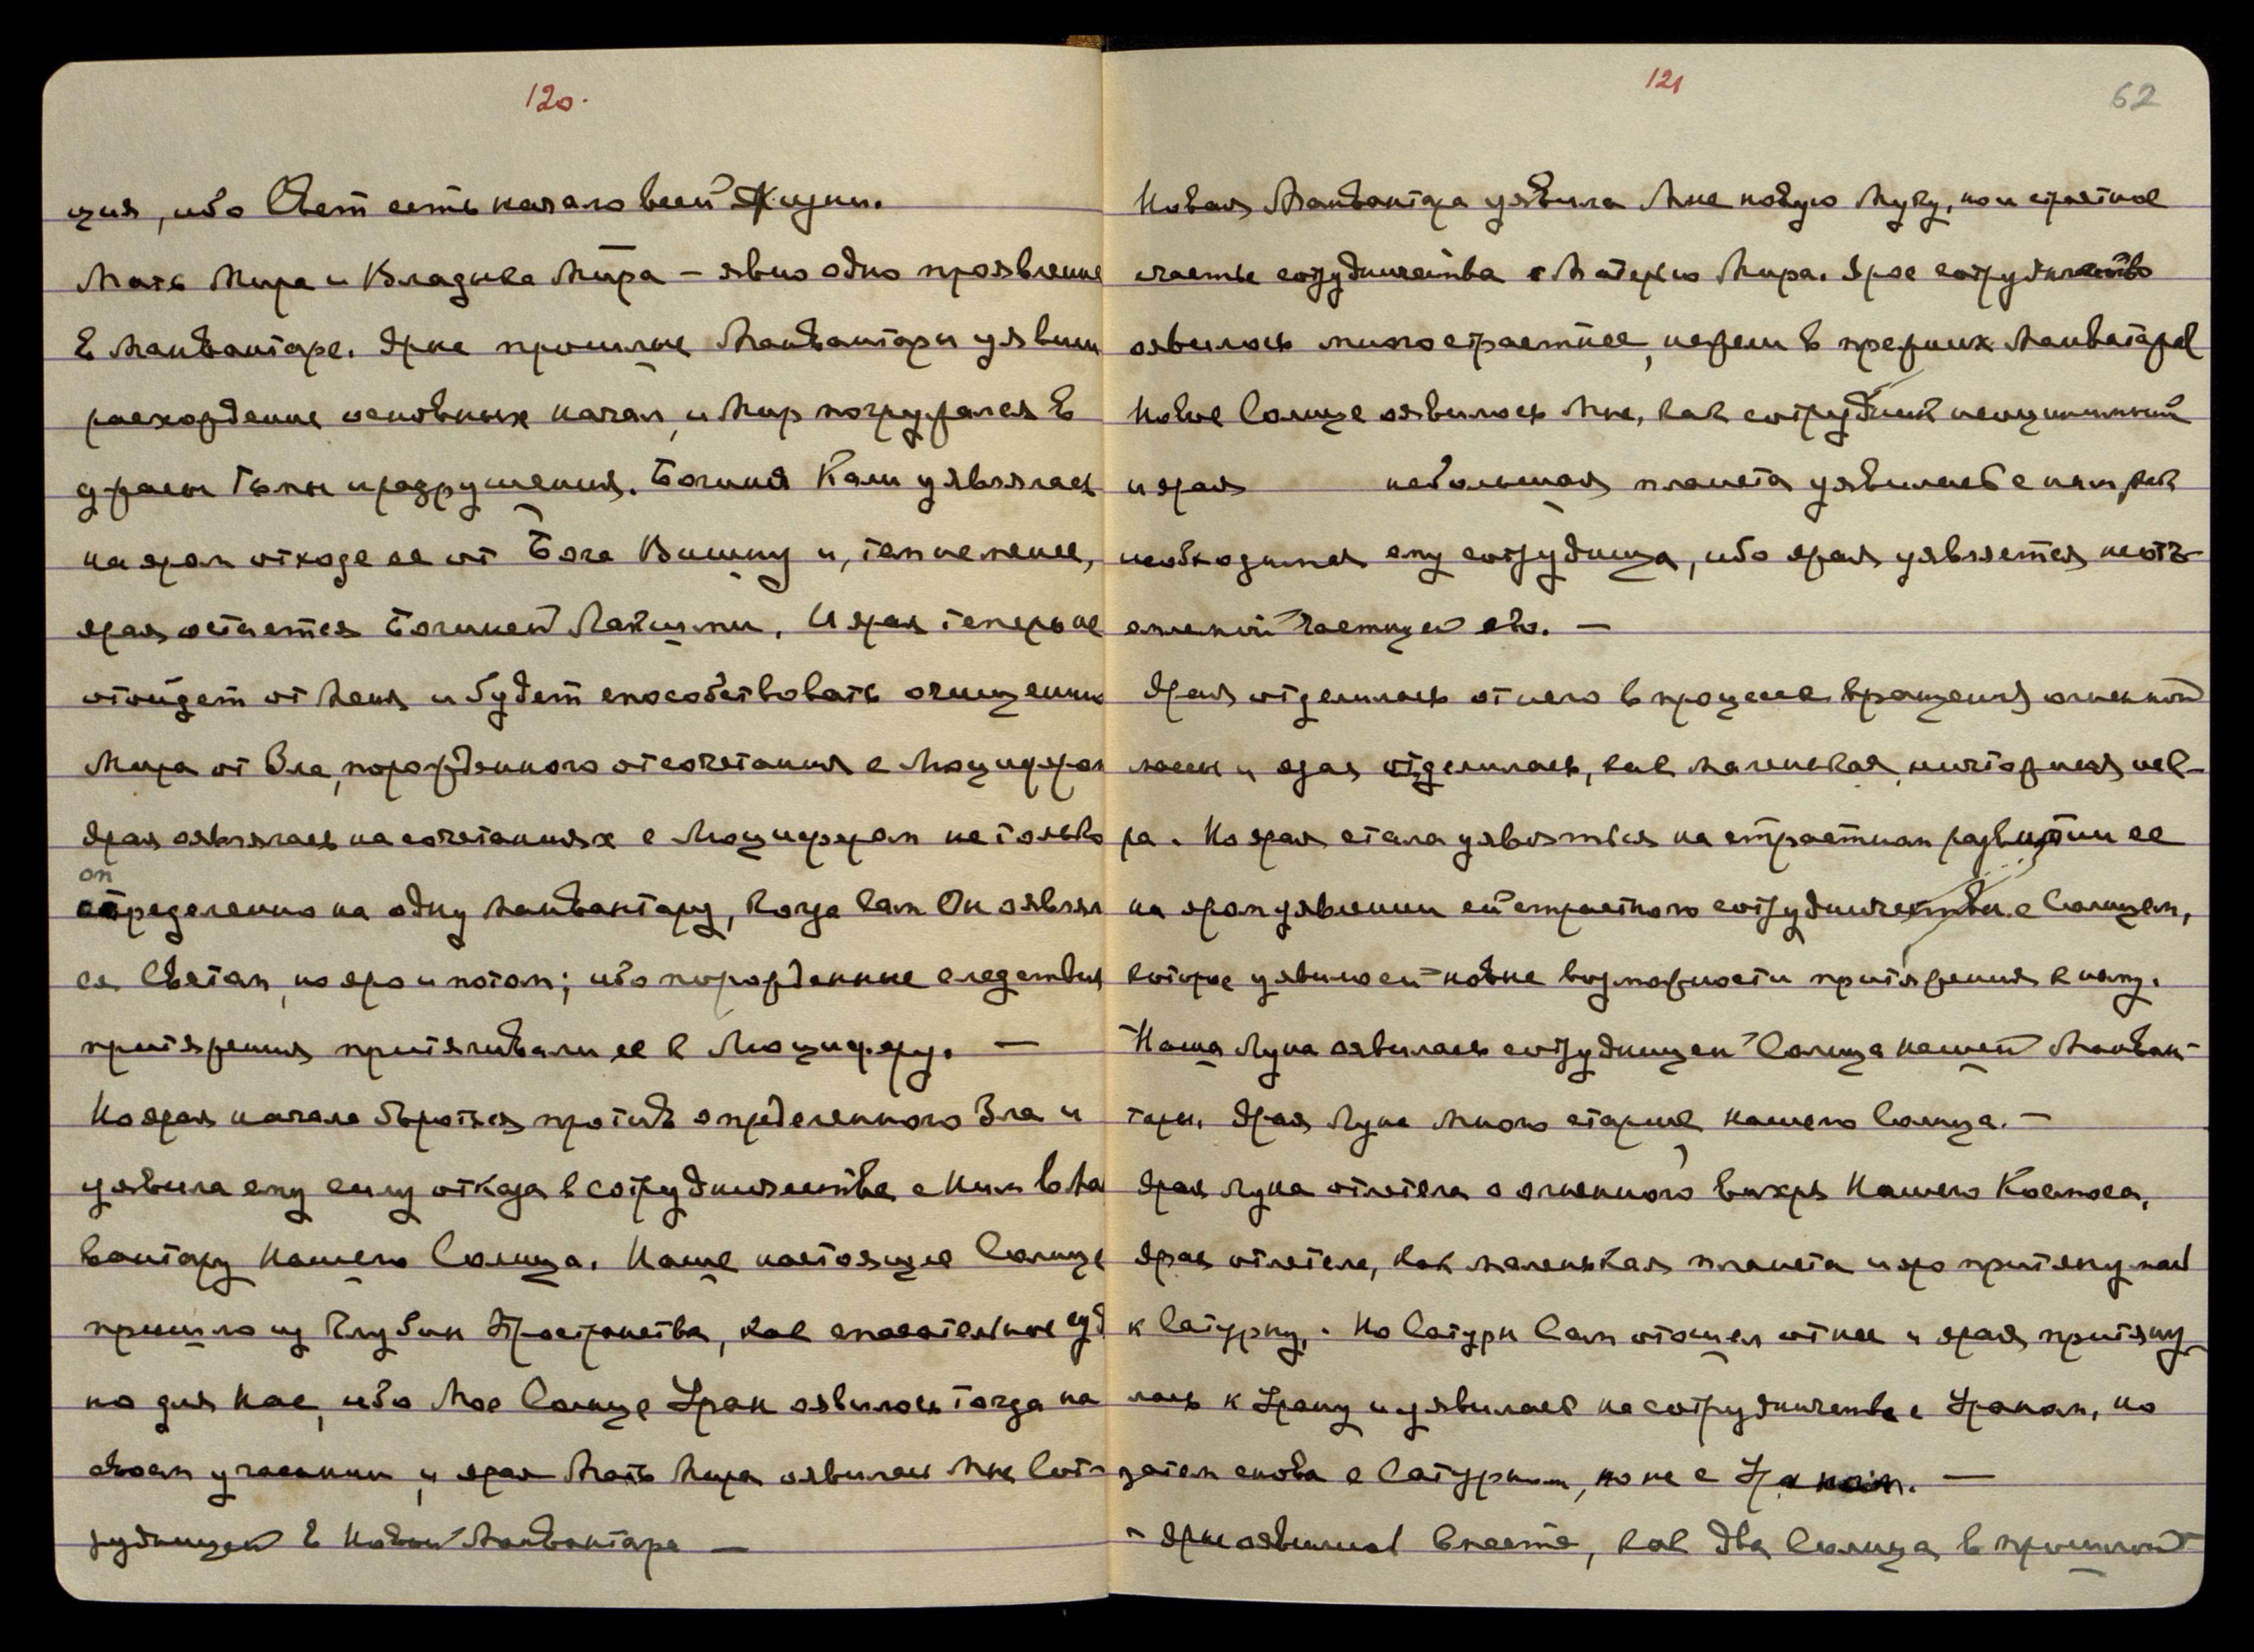 120.
ция, ибо Свет есть начало всей Жизни.
Мать Мира и Владыка Мира – явно одно проявление
в Манвантаре. Ярые прошлые Манвантары уявили
расхождение основных начал, и Мир погружался в
ужасы Тьмы и разрушения. Богиня Кали уявлялась
на яром отходе ее от Бога Вишну и, тем не менее,
ярая остается Богиней Лакшми. И ярая теперь не
отойдет от Меня и будет способствовать очищению
Мира от Зла, порожденного от сочетания с Люцифером
Ярая оявлялась на сочетаниях с Люцифером не только
оп
определенно на одну Манвантару, когда Сам Он оявлял
ся Светом, но яро и потом; ибо порожденные следствия
притяжения притягивали ее к Люциферу. —
Но ярая начала бороться против определенного Зла и
уявила ему силу отказа в сотрудничестве с Ним в Ман
вантару Нашего Солнца. Наше настоящее Солнце
пришло из Глубин Пространства, как спасательное суд
но для Нас, ибо Мое Солнце Уран оявилось тогда на
своем угасании, и ярая Мать Мира оявилась Мне Сот-
рудницей в Новой Манвантаре —
121
62
Новая Манвантара уявила Мне новую Муку, но и страстное
счастье сотрудничества с Матерью Мира. Ярое сотрудничество
оявилось много страстнее, нежели в прежних Манвантарах
Новое Солнце оявилось Мне, как сотрудник неоценимый
и ярая небольшая планета уявилась с ним, как
необходимая ему сотрудница, ибо ярая уявляется неотъ-
емлемой частицей его. —
Ярая отделилась от него в процессе вращения огненной
массы и ярая отделилась, как маленькая, ничтожная иск-
ра. Но ярая стала уявляться на страстном развитии ее
на яром уявлении ей страстного сотрудничества с Солнцем,
которое уявило ей новые возможности притяжения к нему.
Наша Луна оявилась сотрудницей Солнца нашей Манван-
тары. Ярая Луна много старше нашего Солнца. —
Ярая Луна отлетела с огненного вихря Нашего Космоса,
Ярая отлетела, как маленькая планета и яро притянулась
к Сатурну. Но Сатурн Сам отошел от нее и ярая притяну-
лась к Урану и уявилась на сотрудничестве с Ураном, но
затем снова с Сатурном, но не с Ураном. —
Ярые оявились вместе, как два Солнца в прошлой